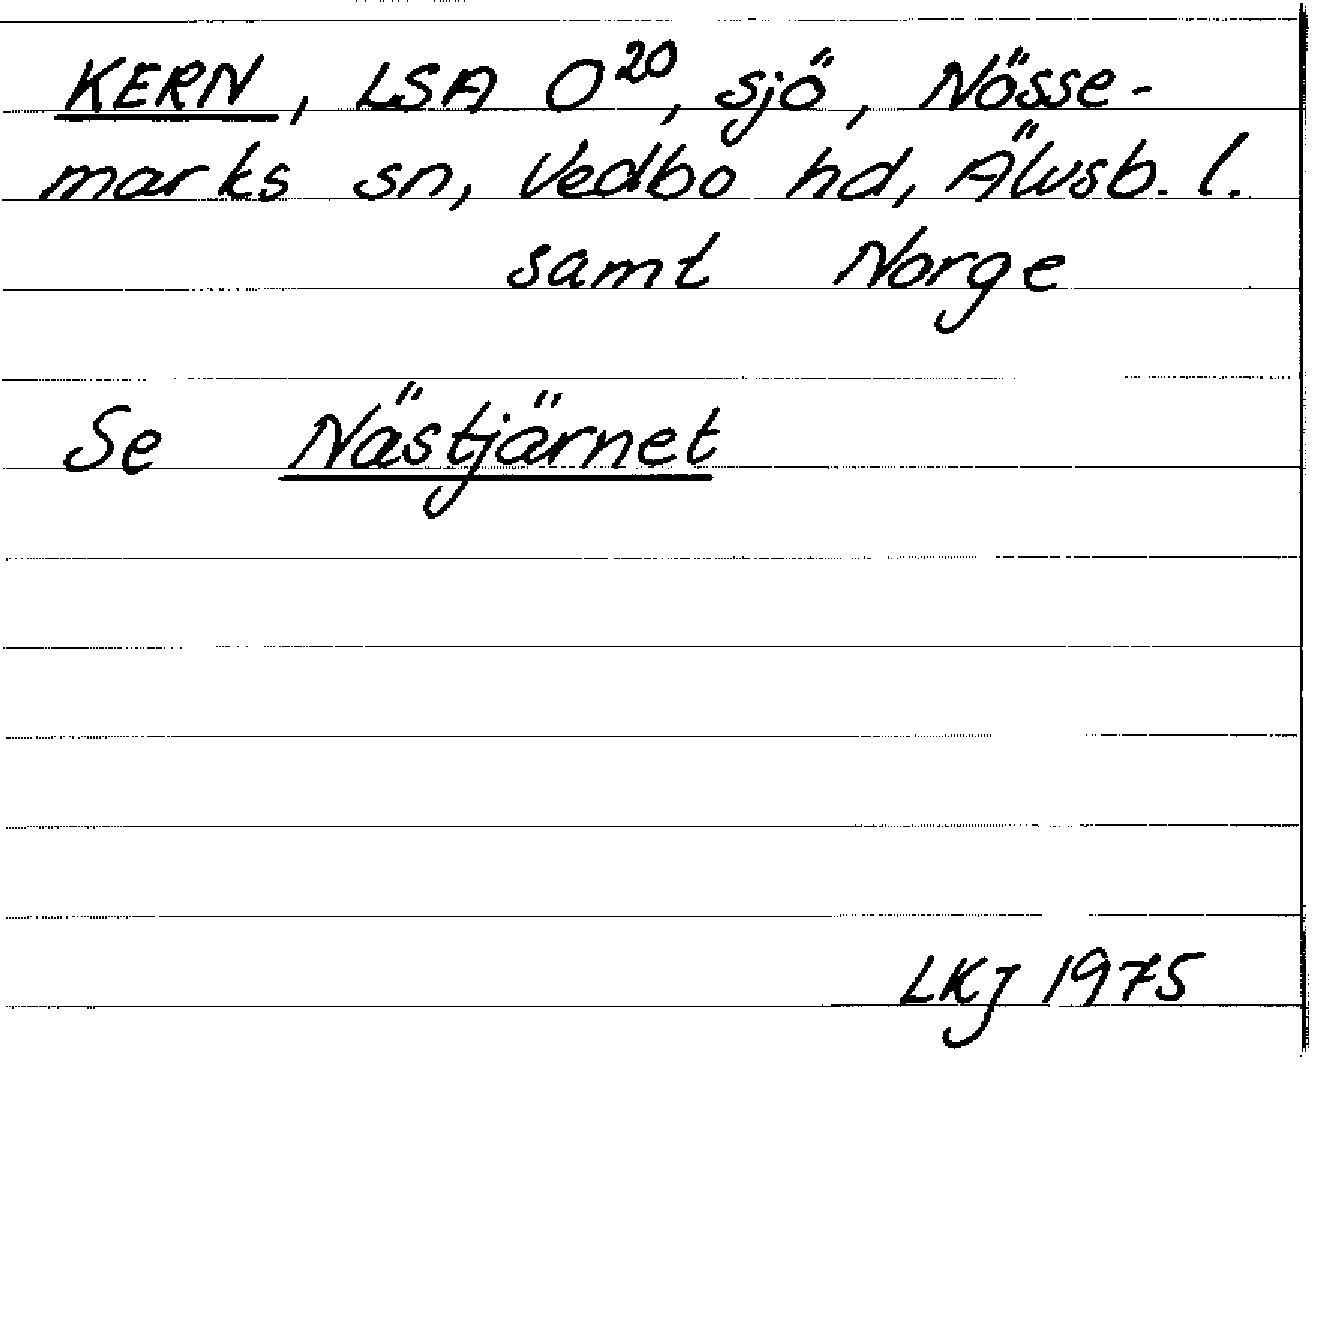 KERN, LSA O²⁰, sjö, Nösse-
marks sn, Vedbo hd, Älvsb. l.
samt Norge
Se Nästjärnet
LKJ 1975